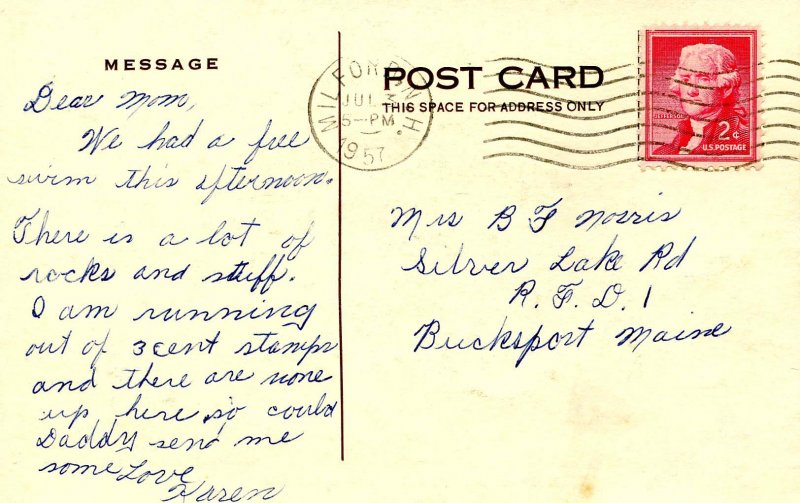 MESSAGE
Dear Mom,
We had a free
swim this afternoon.
There is a lot of
rocks and stuff.
I am running
out of 3 cent stamps
and there are none
up here, so could
Daddy send me
some Love
Karen
MILFORD, N.H.
JUL
5-PM
1957
POST CARD
THIS SPACE FOR ADDRESS ONLY
JEFFERSON
2¢
U.S. POSTAGE
Mrs B F Norris
Silver Lake Rd
R. F. D. 1
Bucksport Maine